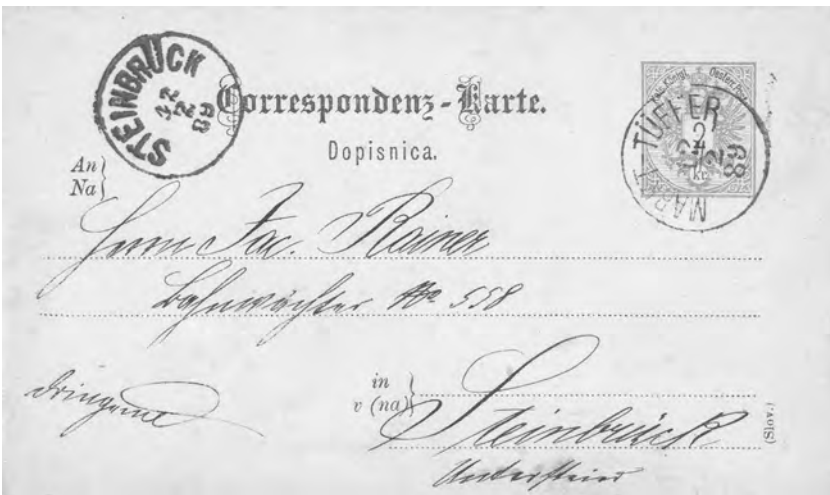 STEINBRUCK
2
89
Correspondenz-Karte.
Dopisnica.
MARKT TÜFFER
2
89
An
Na
Herrn Jac. Rainer
Bahnwächter No 558
dringend
in
v (na)
Steinbrück
Untersteier
(Slov.)